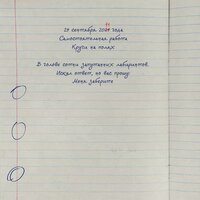 29 сентября 2021 года
Самостоятельная работа
Круги на полях
В голове сотни запутанных лабиринтов.
Искал ответ, но вас прошу:
Меня заберите